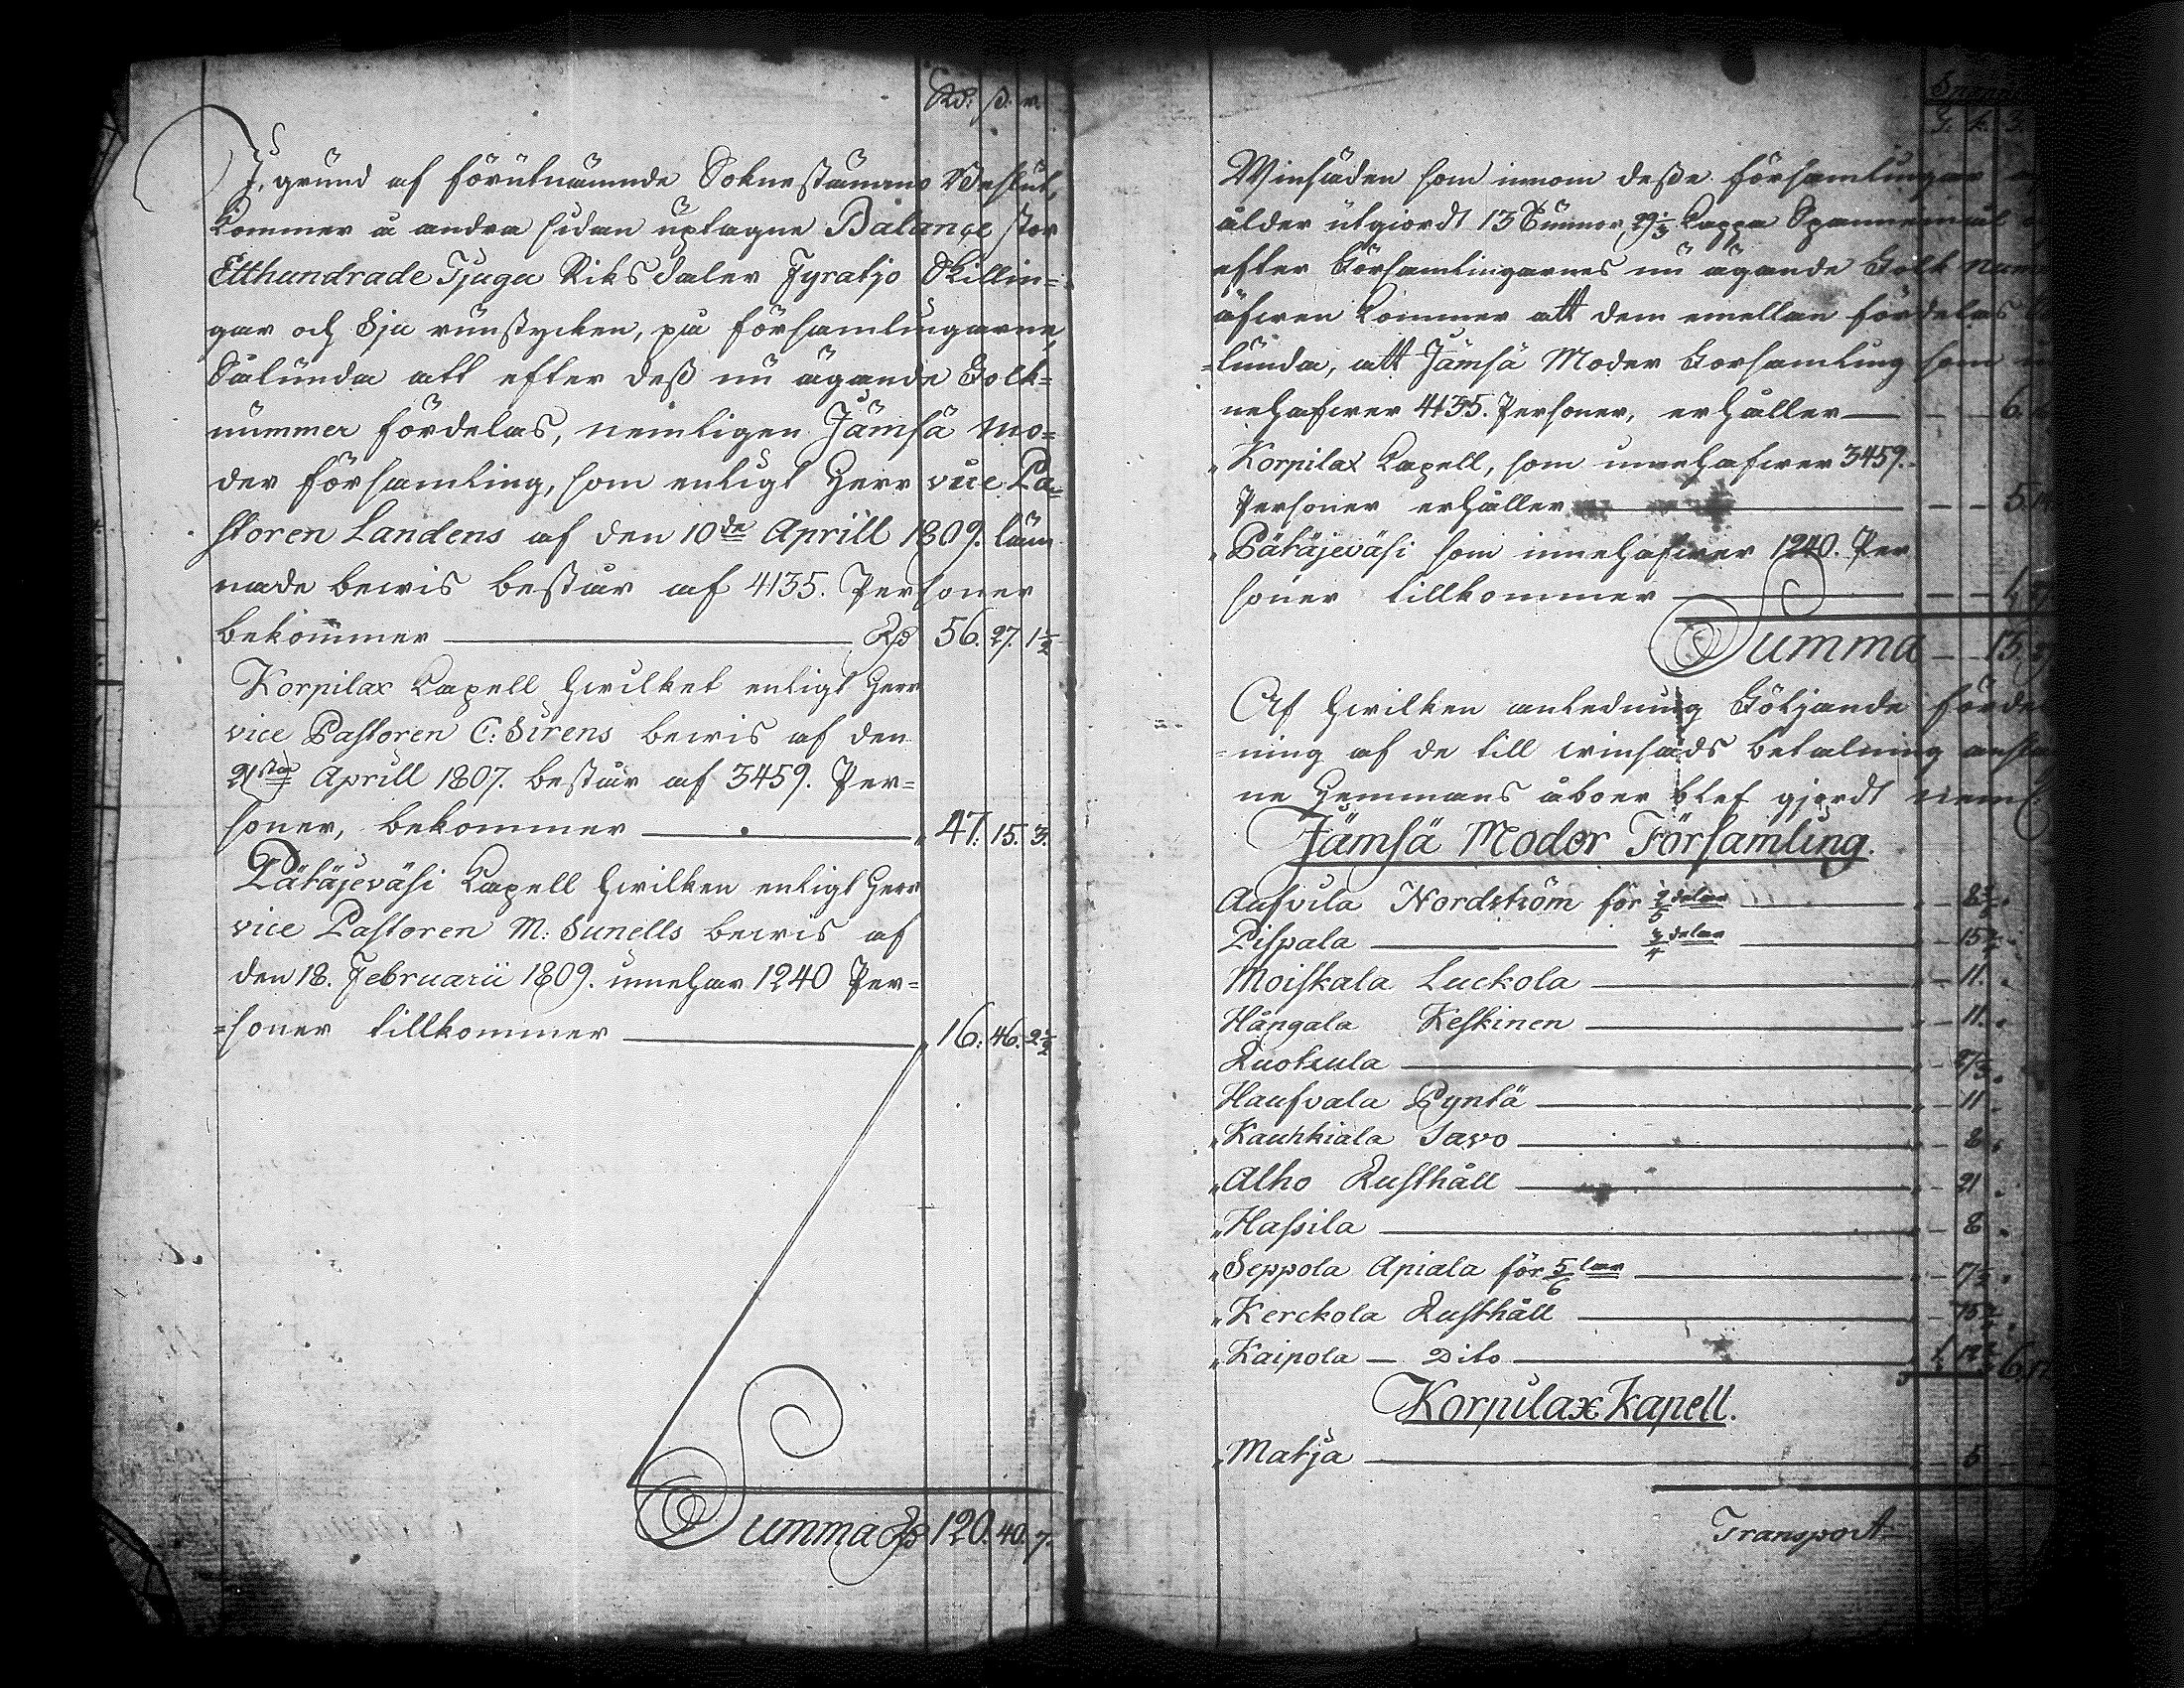 Rd: ß. r.
I, grund af förutnämnde Sokne stämmo Beslut,
kommer å andra sidan uptagne Balançe stor
Etthundrade Tjugu Riksdaler Fyratjo Skillin=
gar och Sju runstycken, på församlingarne,
Sålunda att efter deß nu ägande Folk=
nummer fördelas, nemligen Jämsä mo=
der församling, som enligt Herr vice Pa=
storen Landens af den 10de Aprill 1809. läm
nade bewis består af 4135. Personer
bekommer Rd 56. 27. 1 1/2
Korpilax Capell hwilket enligt Herr
vice Pastoren C: Sirens bewis af den
21sta Aprill 1807. består af 3459. Per=
soner, bekommer 47: 15. 3.
Pätäjeväsi Capell hwilken enligt Herr
vice Pastoren M: Sunells bewis af
den 18. Februarii 1809. innehar 1240 Per=
=soner tillkommer 16: 46. 2 1/2
Summa Rd 120. 40. 7.
Winsäden som innom deße församlingar
ålder utgiordt 13 Tunnor 29 1/3 Kappa Spannemål
efter Församlingarnes nu ägande Folk num
äfwen kommer att dem emellan fördelas
=lunda, att Jämsä Moder Forsamling som
nehafwer 4135. Personer, erhåller 6.
Korpilax Capell, som innehafwer 3459.
Personer erhåller 5.
Pätäjeväsi som innehafwer 1240. Per
soner tillkommer
Summa 13.
Af hwilken anledning Följande förde
=ning af de till winsäds betalning ansla
ne Hemmans åboer blef gjordt neml:
Jämsä Moder Församling.
Aufvila Nordström för 2/5 delar
Pispala 3/4 delar
Moiskala Luckola 11.
Hångala Keskinen 11.
Ruotsula
Haufvala Pyntä 11
Kauhkiala Savo 8
Alho Rusthåll 21
Haßila 8
Seppola Apiala för 5/6 lar
Kerckola Rusthåll
Kaipola Dito
Korpilax Kapell.
Matja
Transport